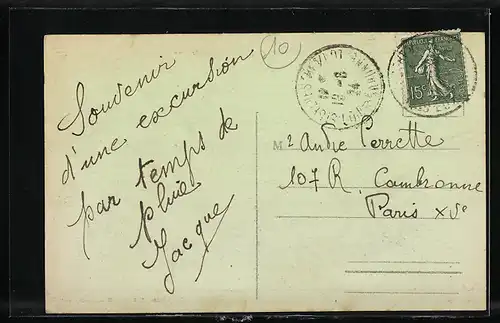 Souvenir
d'une excursion
par temps de
pluie
Jacque
10
15c
M r André Perrette
107 R. Cambronne
Paris XVe